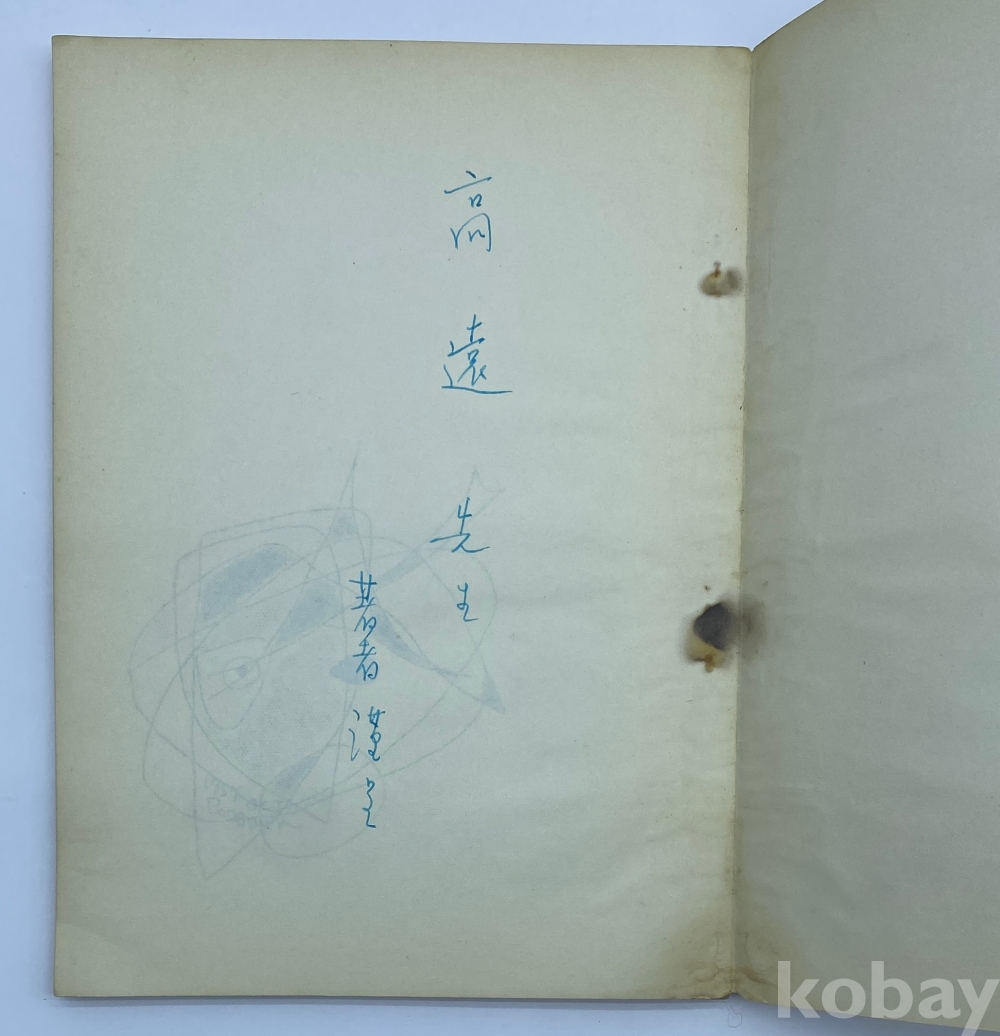 高遠先生
著者謹呈
kobay